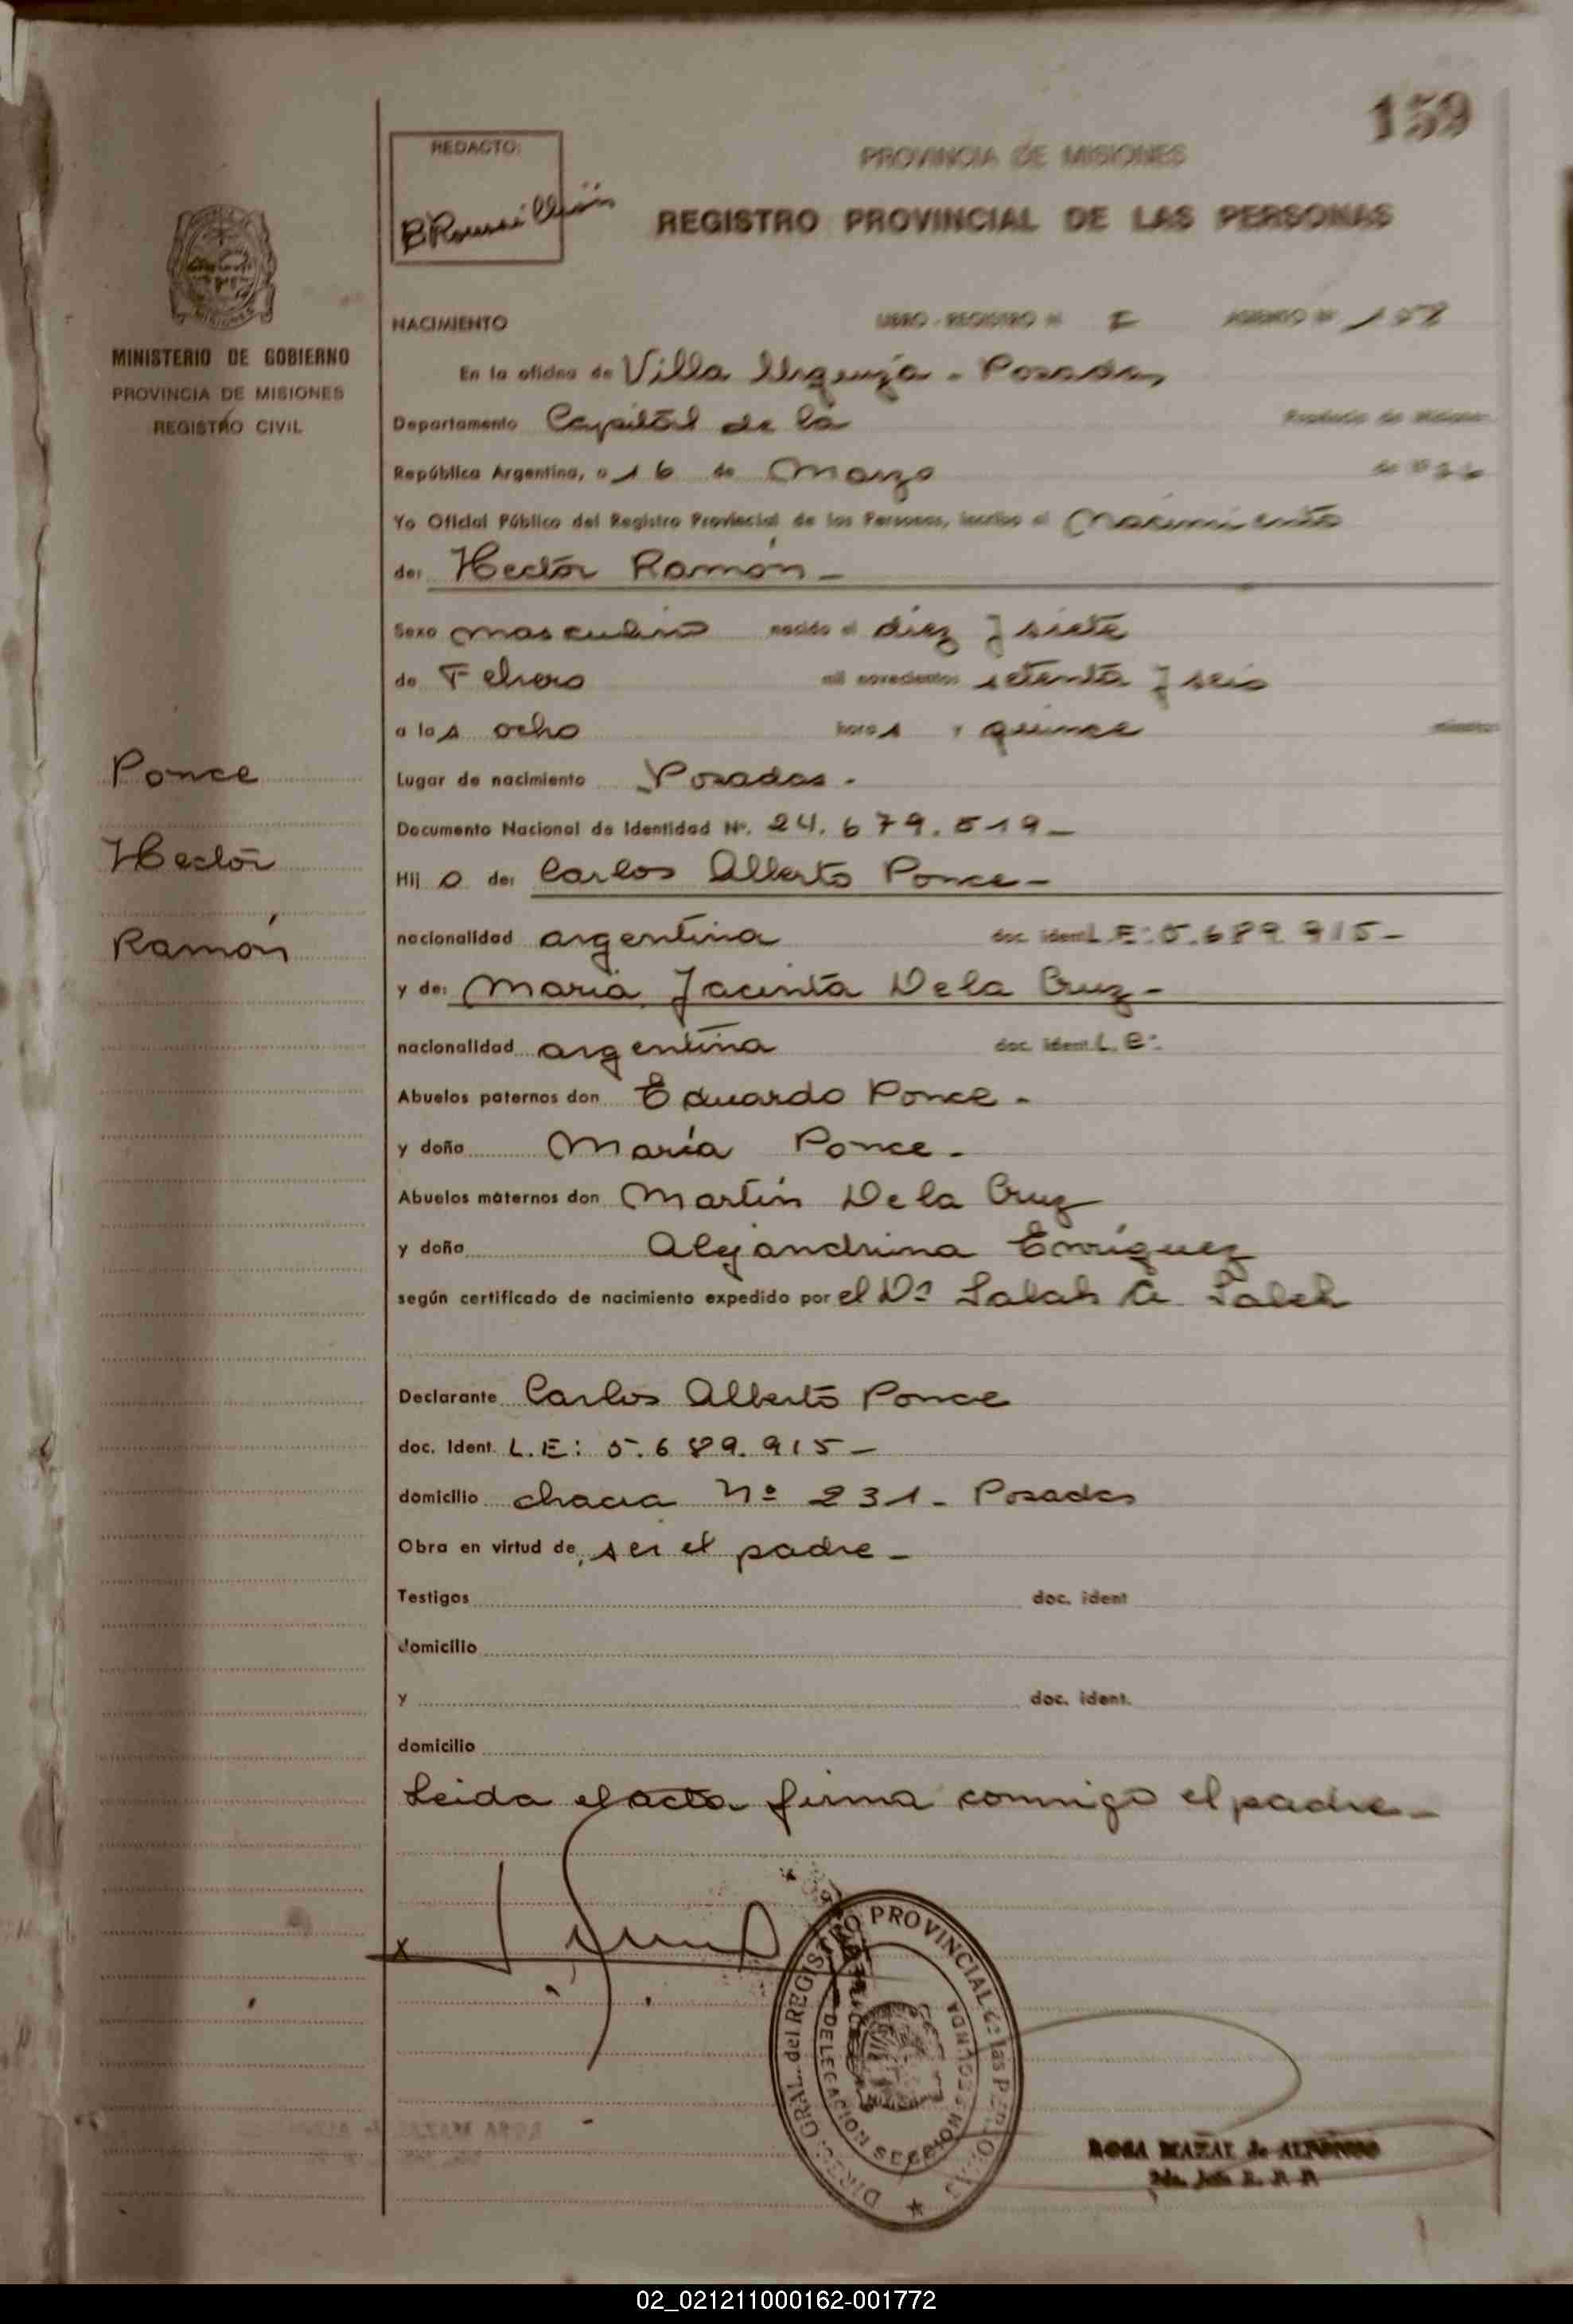 159
REDACTO:
PROVINCIA DE MISIONES
REGISTRO PROVINCIAL DE LAS PERSONAS
MINISTERIO DE GOBIERNO
PROVINCIA DE MISIONES
REGISTRO CIVIL
NACIMIENTO LIBRO - REGISTRO Nº I ASIENTO Nº 158
En la oficina de Villa Urquiza - Posadas
Departamento Capital de la Provincia de Misiones
República Argentina, a 16 de Marzo de 1976
Yo Oficial Público del Registro Provincial de las Personas, inscribo el Nacimiento
de: Hector Ramón -
Sexo masculino nacido el diez y siete
de Febrero mil novecientos setenta y seis
a las ocho horas y quince minutos
Ponce
Hector
Ramón
Lugar de nacimiento Posadas -
Documento Nacional de Identidad Nº. 24.679.519 -
Hijo de: Carlos Alberto Ponce -
nacionalidad argentina doc. ident. L.E: 5.689.915 -
y de: Maria Jacinta De la Cruz -
nacionalidad argentina doc. ident. L.E:
Abuelos paternos don Eduardo Ponce -
y doña María Ponce -
Abuelos maternos don Martín De la Cruz
y doña Alejandrina Enríquez
según certificado de nacimiento expedido por el Dr Salah A. Saleh
Declarante Carlos Alberto Ponce
doc. Ident. L.E: 5.689.915 -
domicilio chacra Nº 231 - Posadas
Obra en virtud de, ser el padre -
Testigos doc. ident
domicilio
y doc. ident.
domicilio
Leida el acta firma conmigo el padre -
DIREC. GRAL. del REGISTRO PROVINCIAL de las PERSONAS
DELEGACION SECCION SEGUNDA
ROSA MAZAL de ALFONSO
02_021211000162-001772